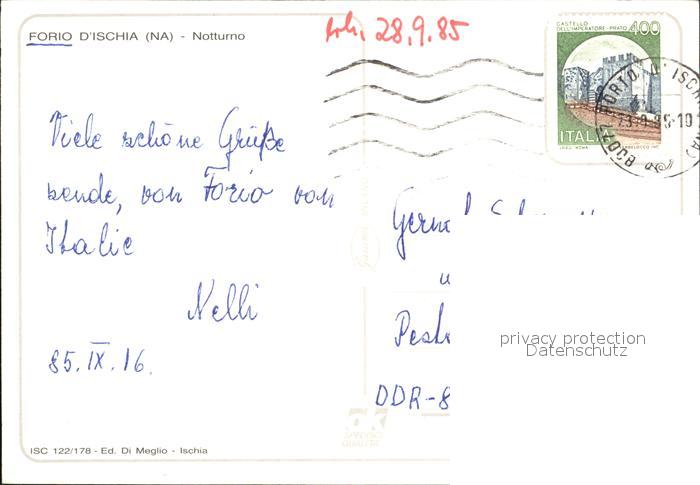 FORIO D'ISCHIA (NA) - Notturno
28.9.85
CASTELLO
DELL'IMPERATORE - PRATO 400
ITALIA
80077 PORTO D'ISCHIA (NA)
Viele schöne Grüße
sende, von Forio von
Italie
Nelli
85.IX.16.
DDR-8
privacy protection
Datenschutz
ISC 122/178 - Ed. Di Meglio - Ischia